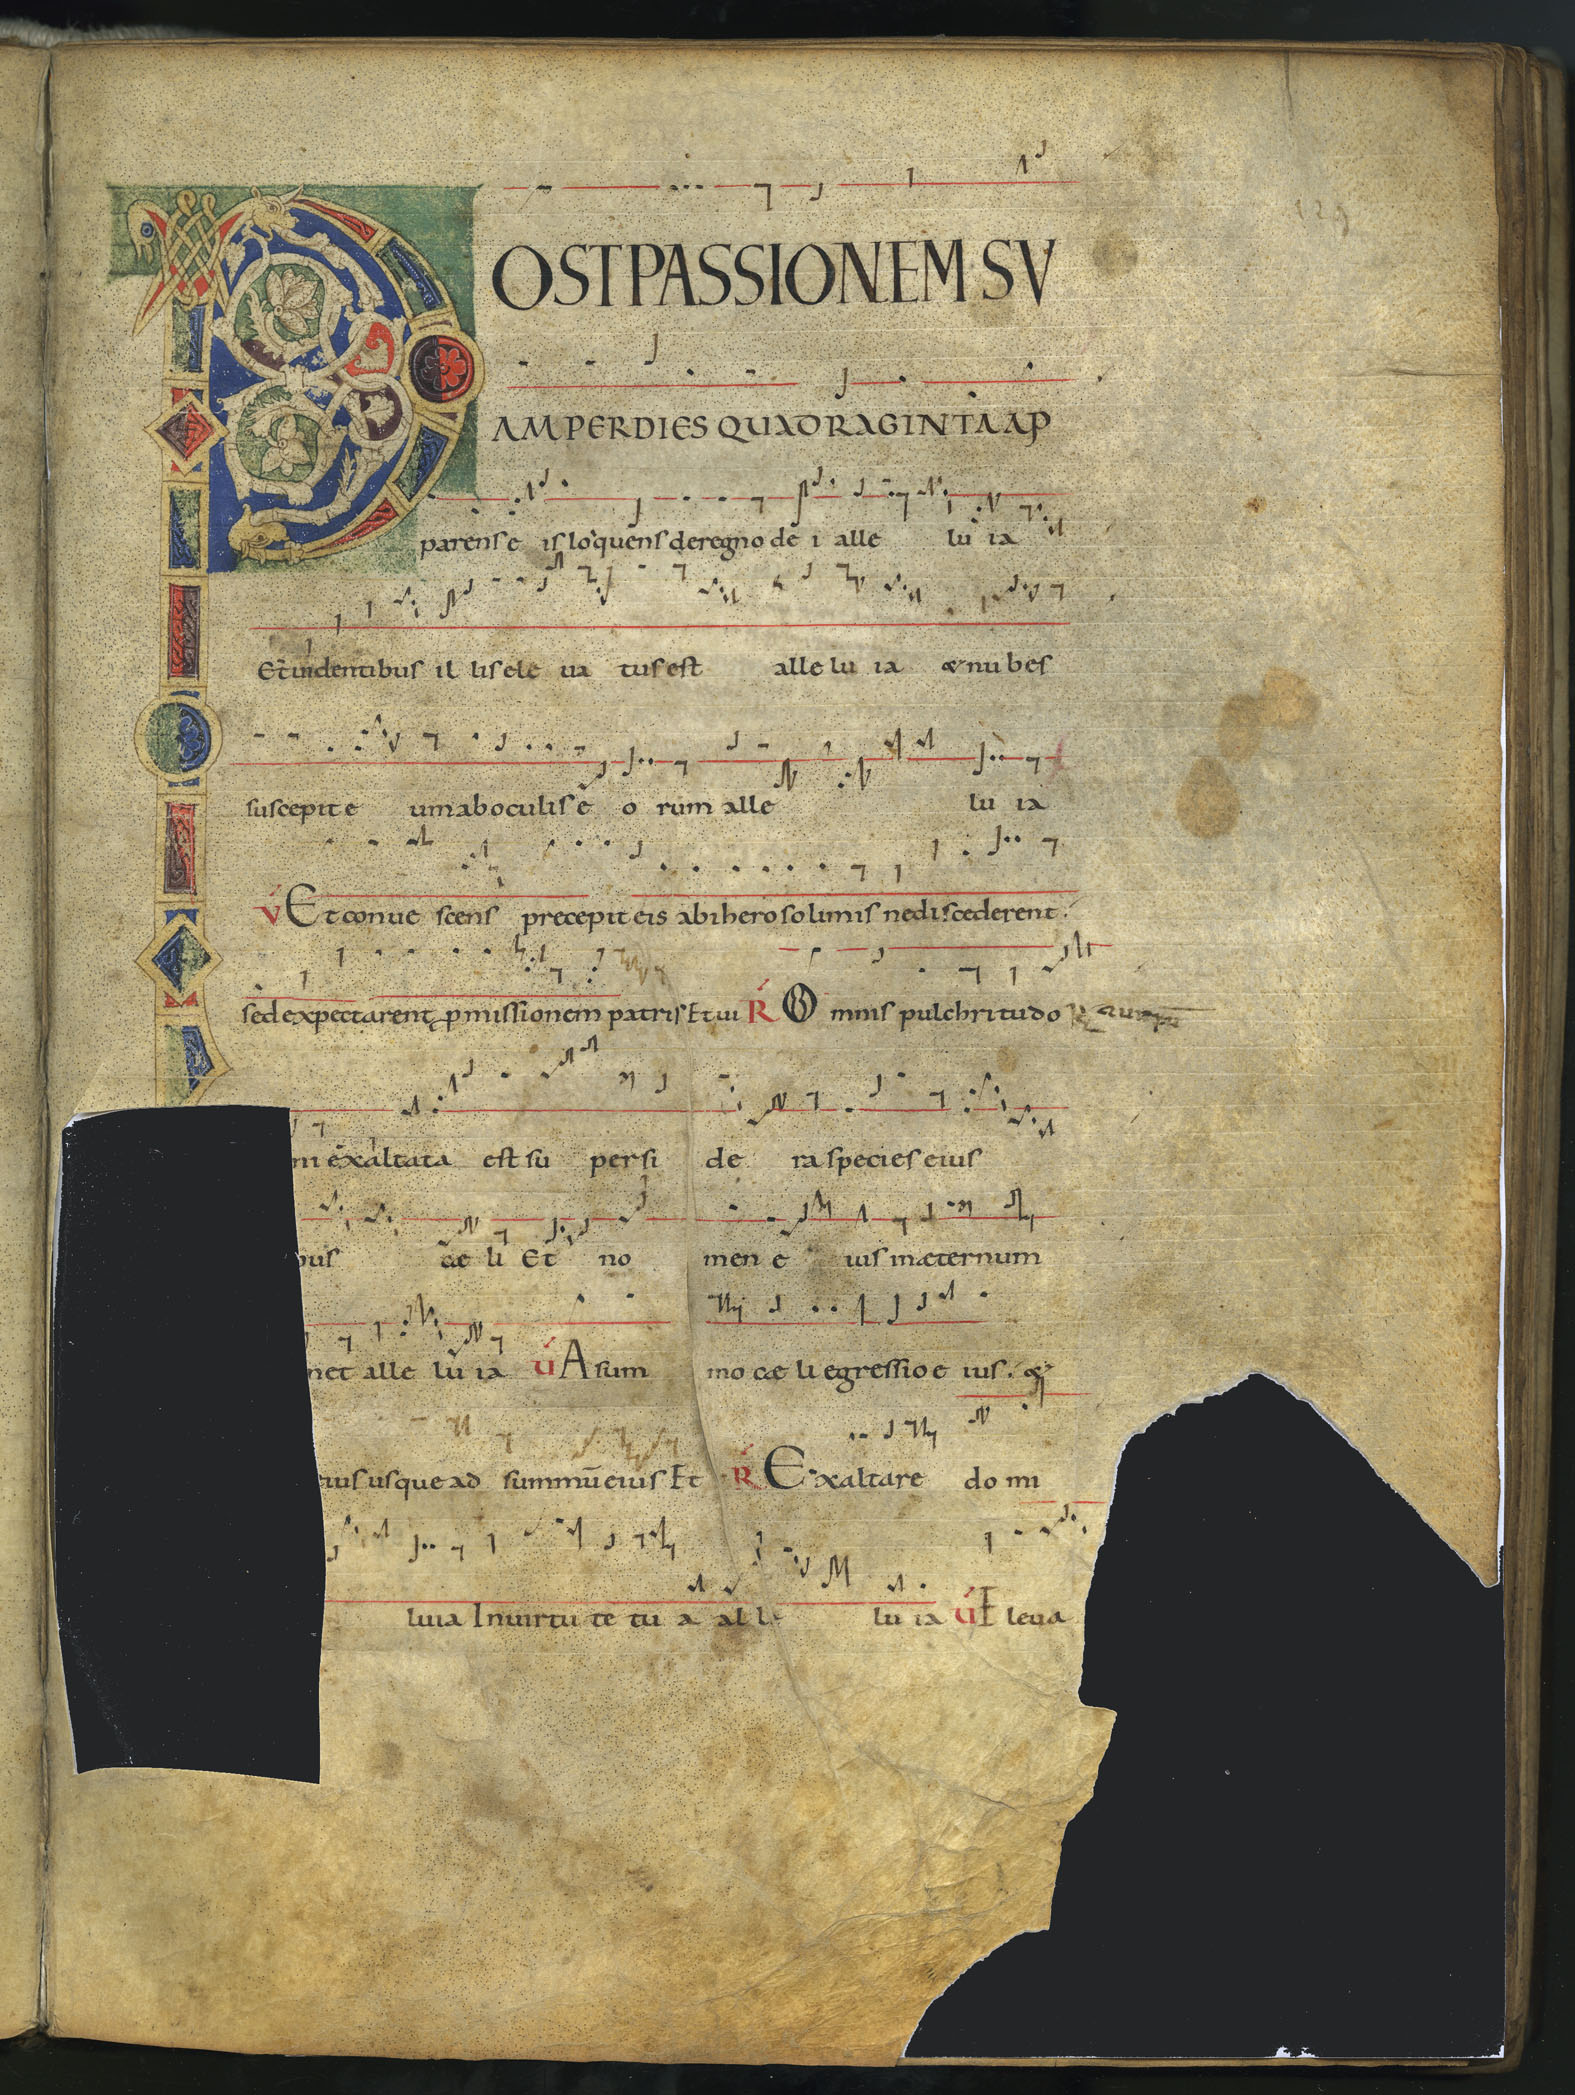 POST PASSIONEM SV
AM PER DIES QUADRAGINTA AP
parens e is loquens de regno de i alle lu ia
Et uidentibus il lis ele ua tus est alle lu ia & nubes
suscepit e um ab oculis e o rum alle lu ia
V Et conue scens precepit eis ab iherosolimis ne discederent.
sed expectarent promissionem patris Et ui R Omnis pulchritudo
ni exaltata est su per si de ra species eius
bus cæ li Et no men e ius in æternum
net alle lu ia V A sum mo cæ li egressio e ius. &
eius usque ad summū eius Et R Exaltare do mi
luia In uirtu te tu a alle lu ia V Eleua